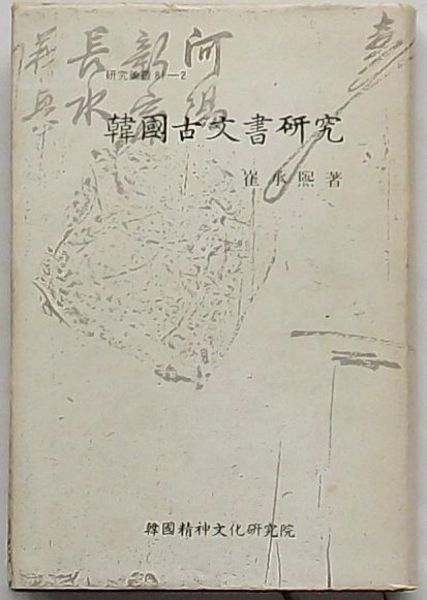 研究論叢 81—2
韓國古文書硏究
崔承熙 著
韓國精神文化硏究院
長
水
新
河